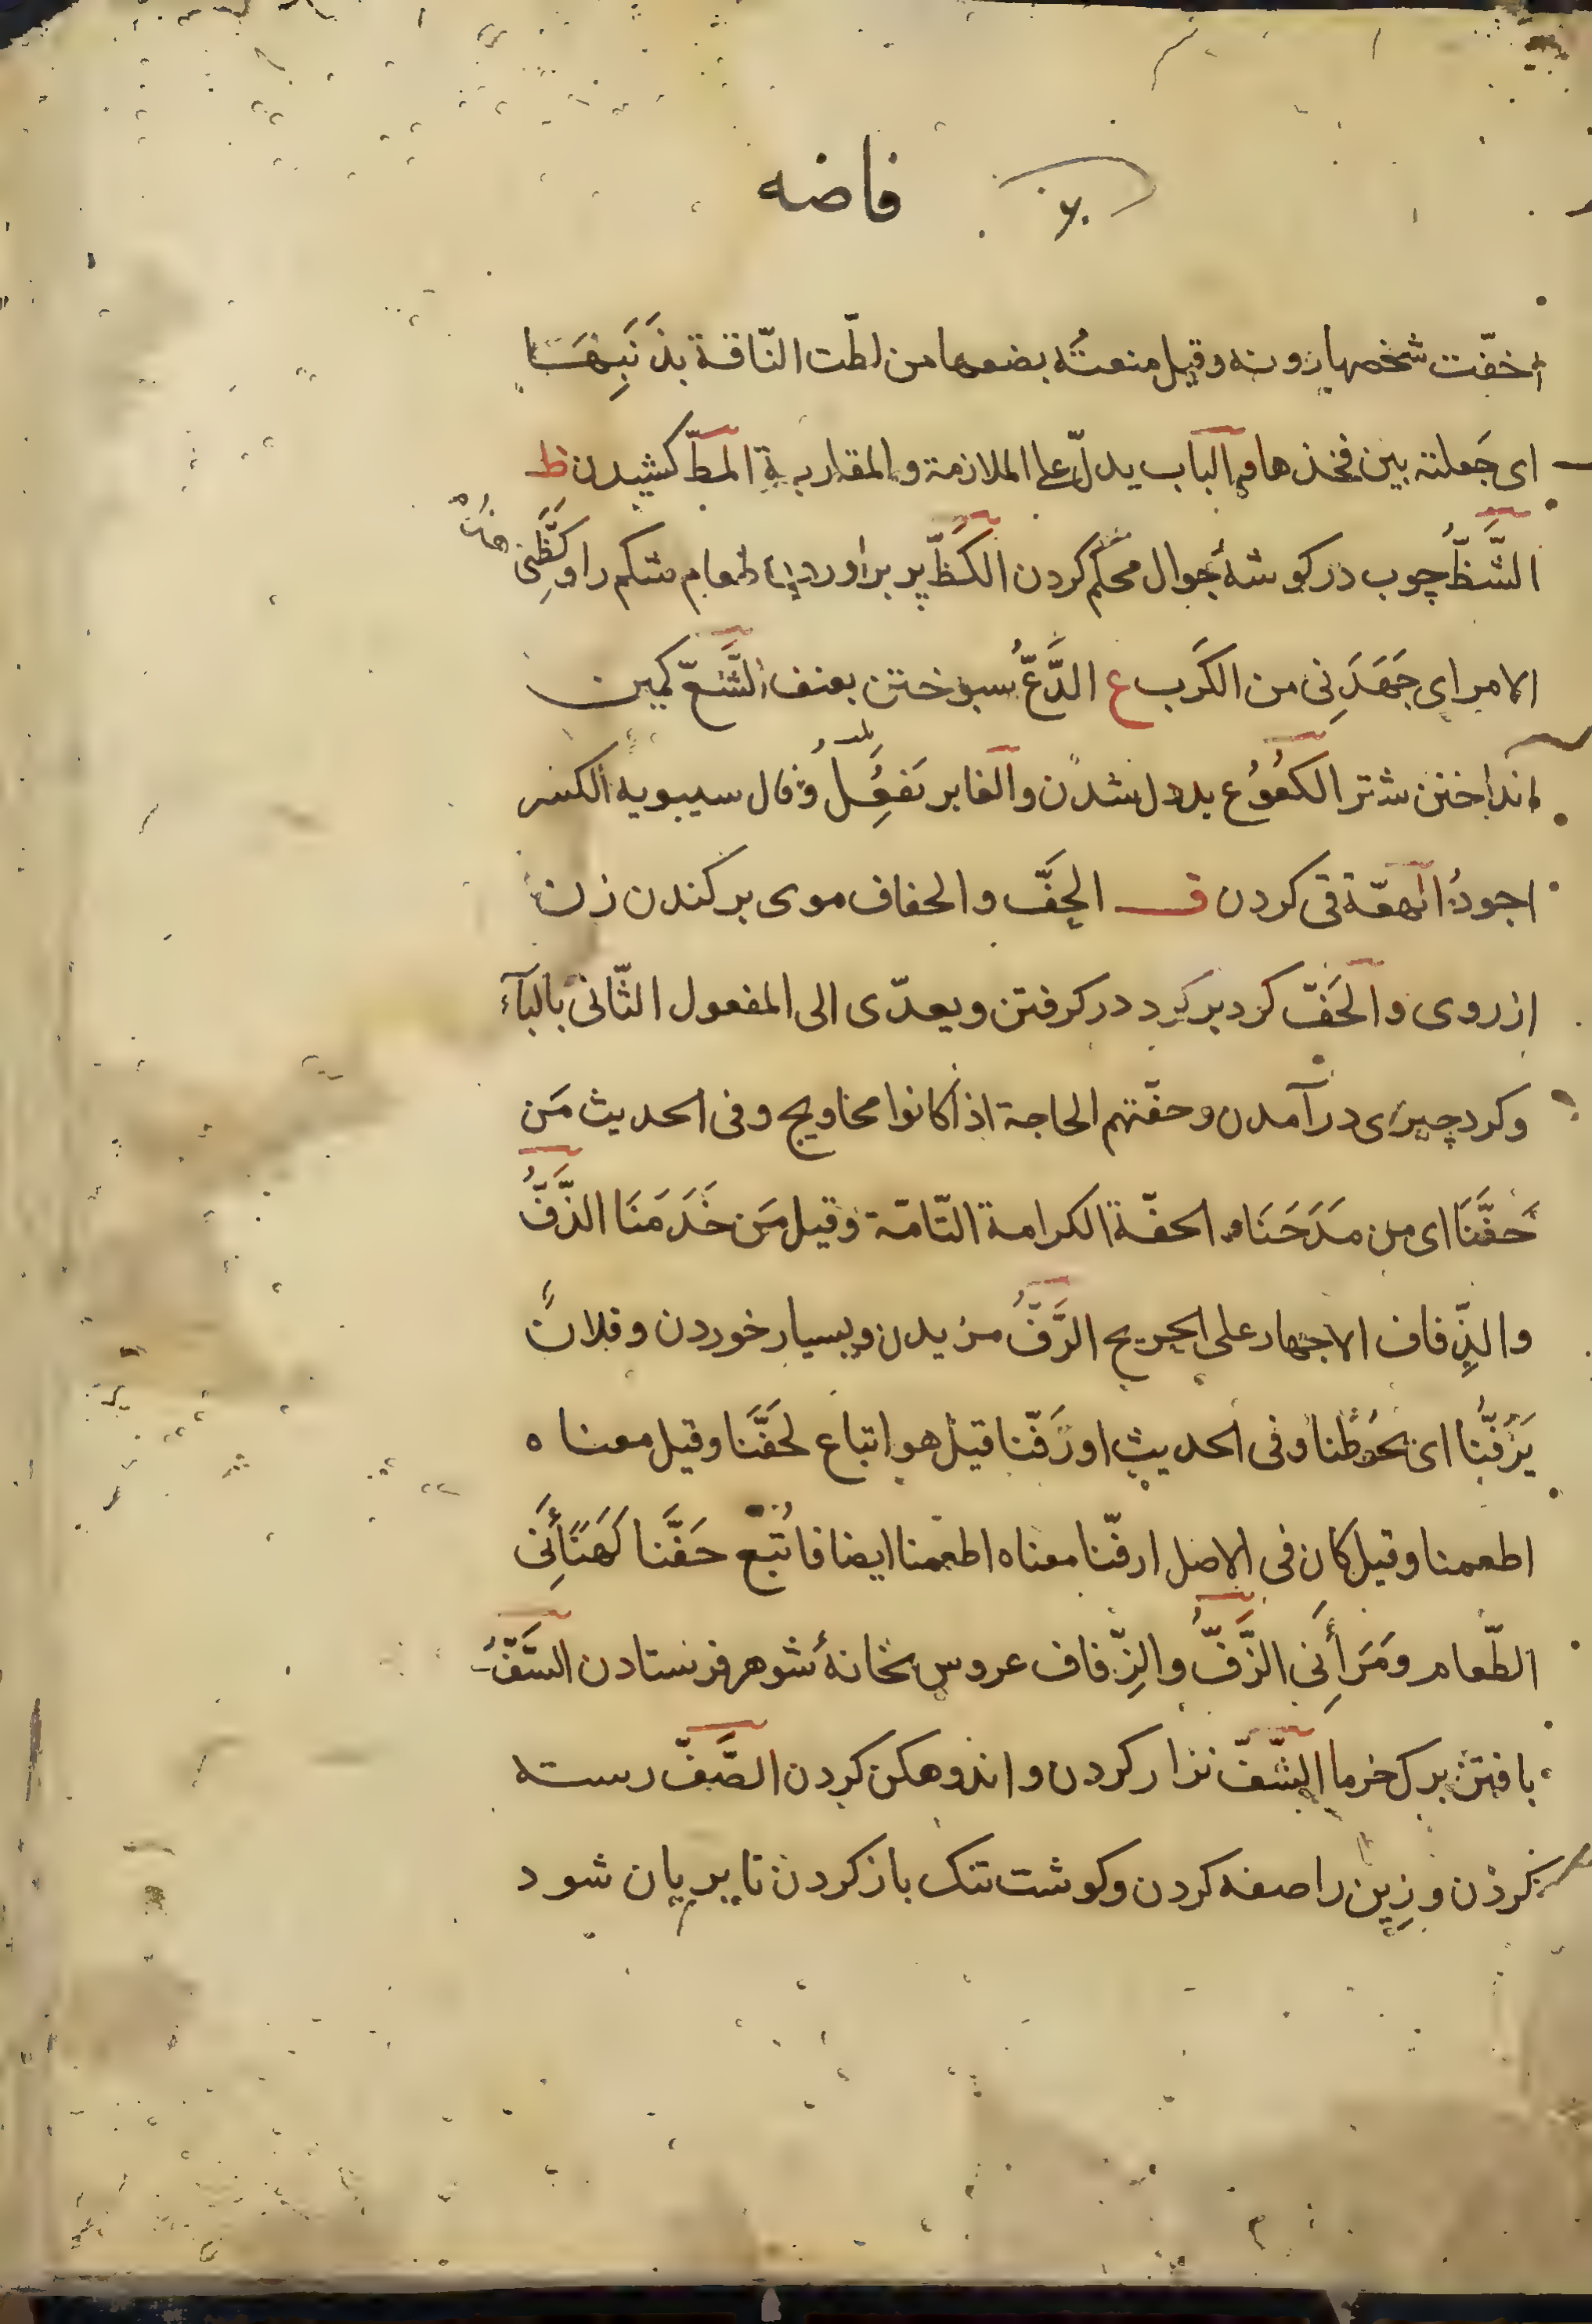 فاضه
اخفّت شخصها دونه وقيل منعتْه بضعها من لطّت النّاقة بذَنَبِهَا
اى جَعلته بين فخذها والباب يدلّ على الملازمة والمقاربة المَطّ كشيدن ظ
الشَّظُّ چوب در كوشهٔ جوال محكم كردن الكَظّ پر براوردن طعام شكم را وكَظَّنِى هذا
الامر اى جَهَدَنِى من الكَرب ع الدَّعُّ سبوختن بعنف الشَّعّ كميز
انداختن شتر الكُعُوُع بددل شدن والغابر يَفعُِلُ وقال سيبويه الكسر
اجودُ الهعّة قى كردن ف الحَفّ والحفاف موى بركندن زن
از روى والحَفّ كرد بر كرد در كرفتن ويعدّى الى المفعول الثّانى بالبآء
وكرد چيزى درآمدن وحفّتهم الحاجة اذا كانوا محاويج وفى الحديث مَن
حَفَّنَا اى من مَدَحَنَا والحفّة الكرامة التّامّة وقيل مَن خَدَمَنَا الذَّفُّ
والذِّفاف الاجهار على الجريح الرَّفُّ مزيدن وبسيار خوردن وفلانٌ
يَرُفّنَا اى يحُوطُنا وفى الحديث او رَفّنا قيل هو اتباع لحَفَّنَا وقيل معناه
اطعمنا وقيل كان فى الاصل ارفّنا معناه اطعمنا ايضا فاُتبع حَفَّنا كَهَنَأَنِى
الطّعام ومَرَأَنِى الزَّفُّ والزِّفاف عروس بخانهٔ شوهر فرستادن السَّفّ
بافتن برك خرما الشَّفّ نزار كردن واندوهكن كردن الصَّفّ رسته
كردن وزِين را صفه كردن وكوشت تنك باز كردن تا بريان شود